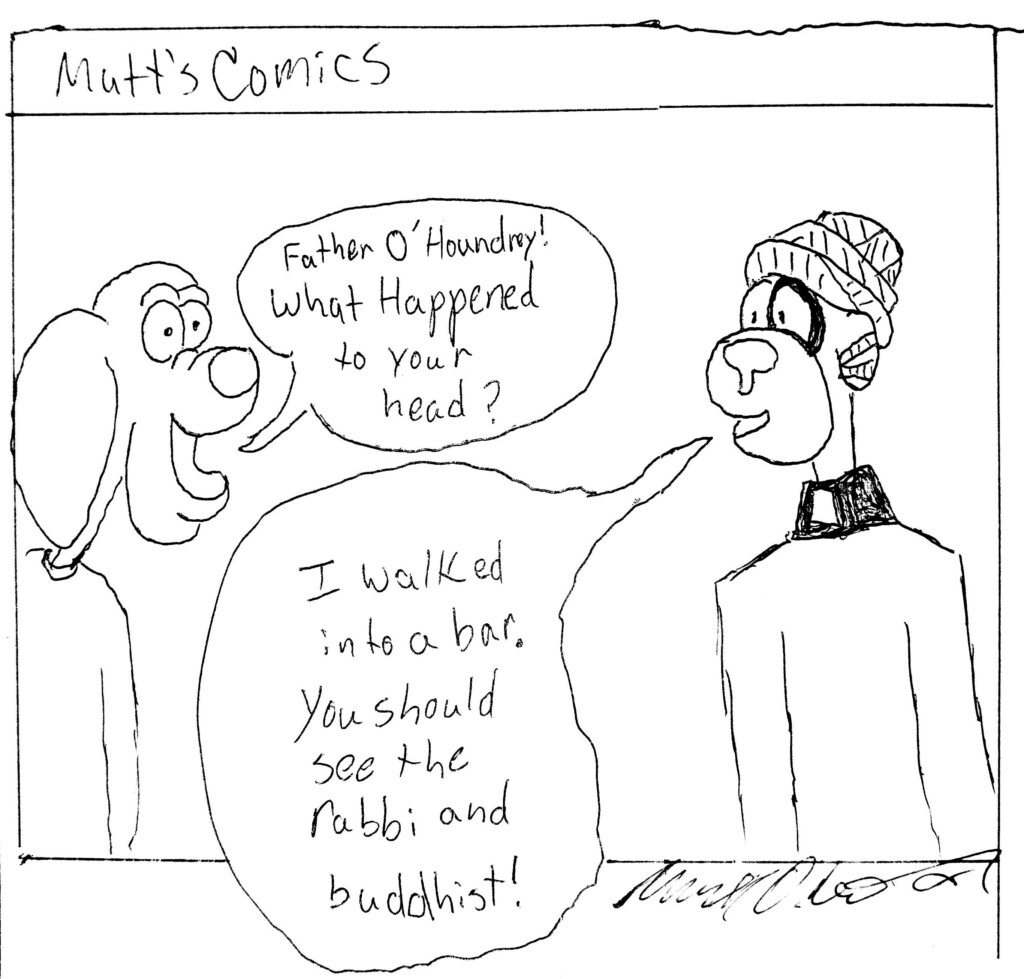 Matt's Comics
Father O'Houndrey!
What Happened
to your
head?
I walked
into a bar.
You should
see the
rabbi and
buddhist!